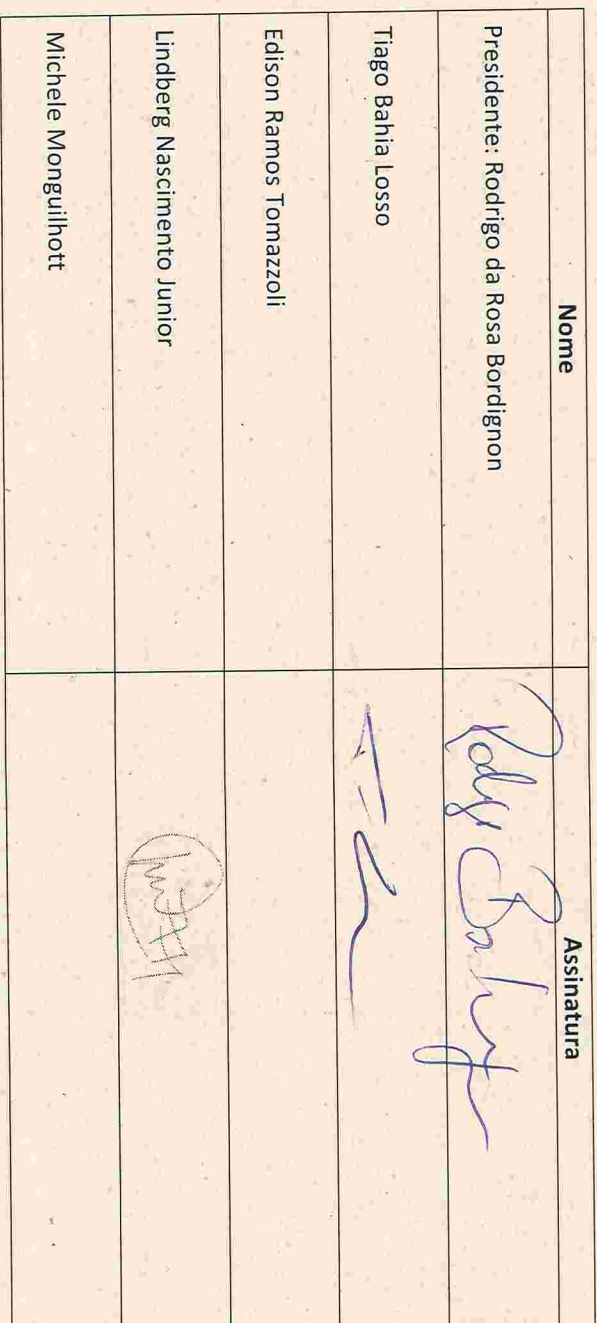 Nome Assinatura
Presidente: Rodrigo da Rosa Bordignon
Tiago Bahia Losso
Edison Ramos Tomazzoli
Lindberg Nascimento Junior
Michele Monguilhott